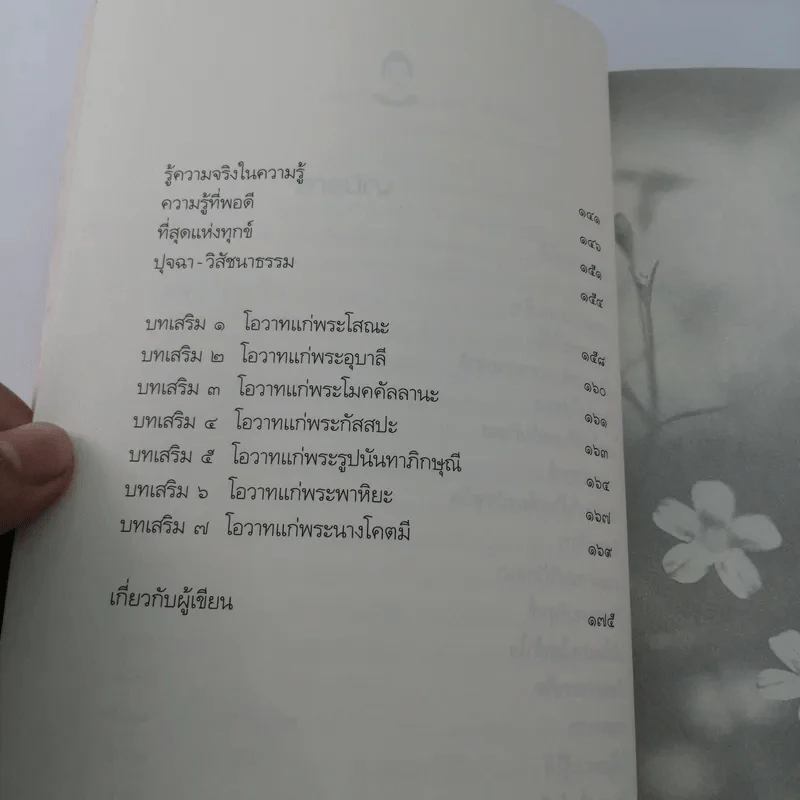 รู้ความจริงในความรู้ ๑๔๑
ความรู้ที่พอดี ๑๔๖
ที่สุดแห่งทุกข์ ๑๕๑
ปุจฉา - วิสัชนาธรรม ๑๕๔
บทเสริม ๑ โอวาทแก่พระโสณะ ๑๕๘
บทเสริม ๒ โอวาทแก่พระอุบาลี ๑๖๐
บทเสริม ๓ โอวาทแก่พระโมคคัลลานะ ๑๖๑
บทเสริม ๔ โอวาทแก่พระกัสสปะ ๑๖๓
บทเสริม ๕ โอวาทแก่พระรูปนันทาภิกษุณี ๑๖๔
บทเสริม ๖ โอวาทแก่พระพาหิยะ ๑๖๗
บทเสริม ๗ โอวาทแก่พระนางโคตมี ๑๖๙
เกี่ยวกับผู้เขียน ๑๗๕